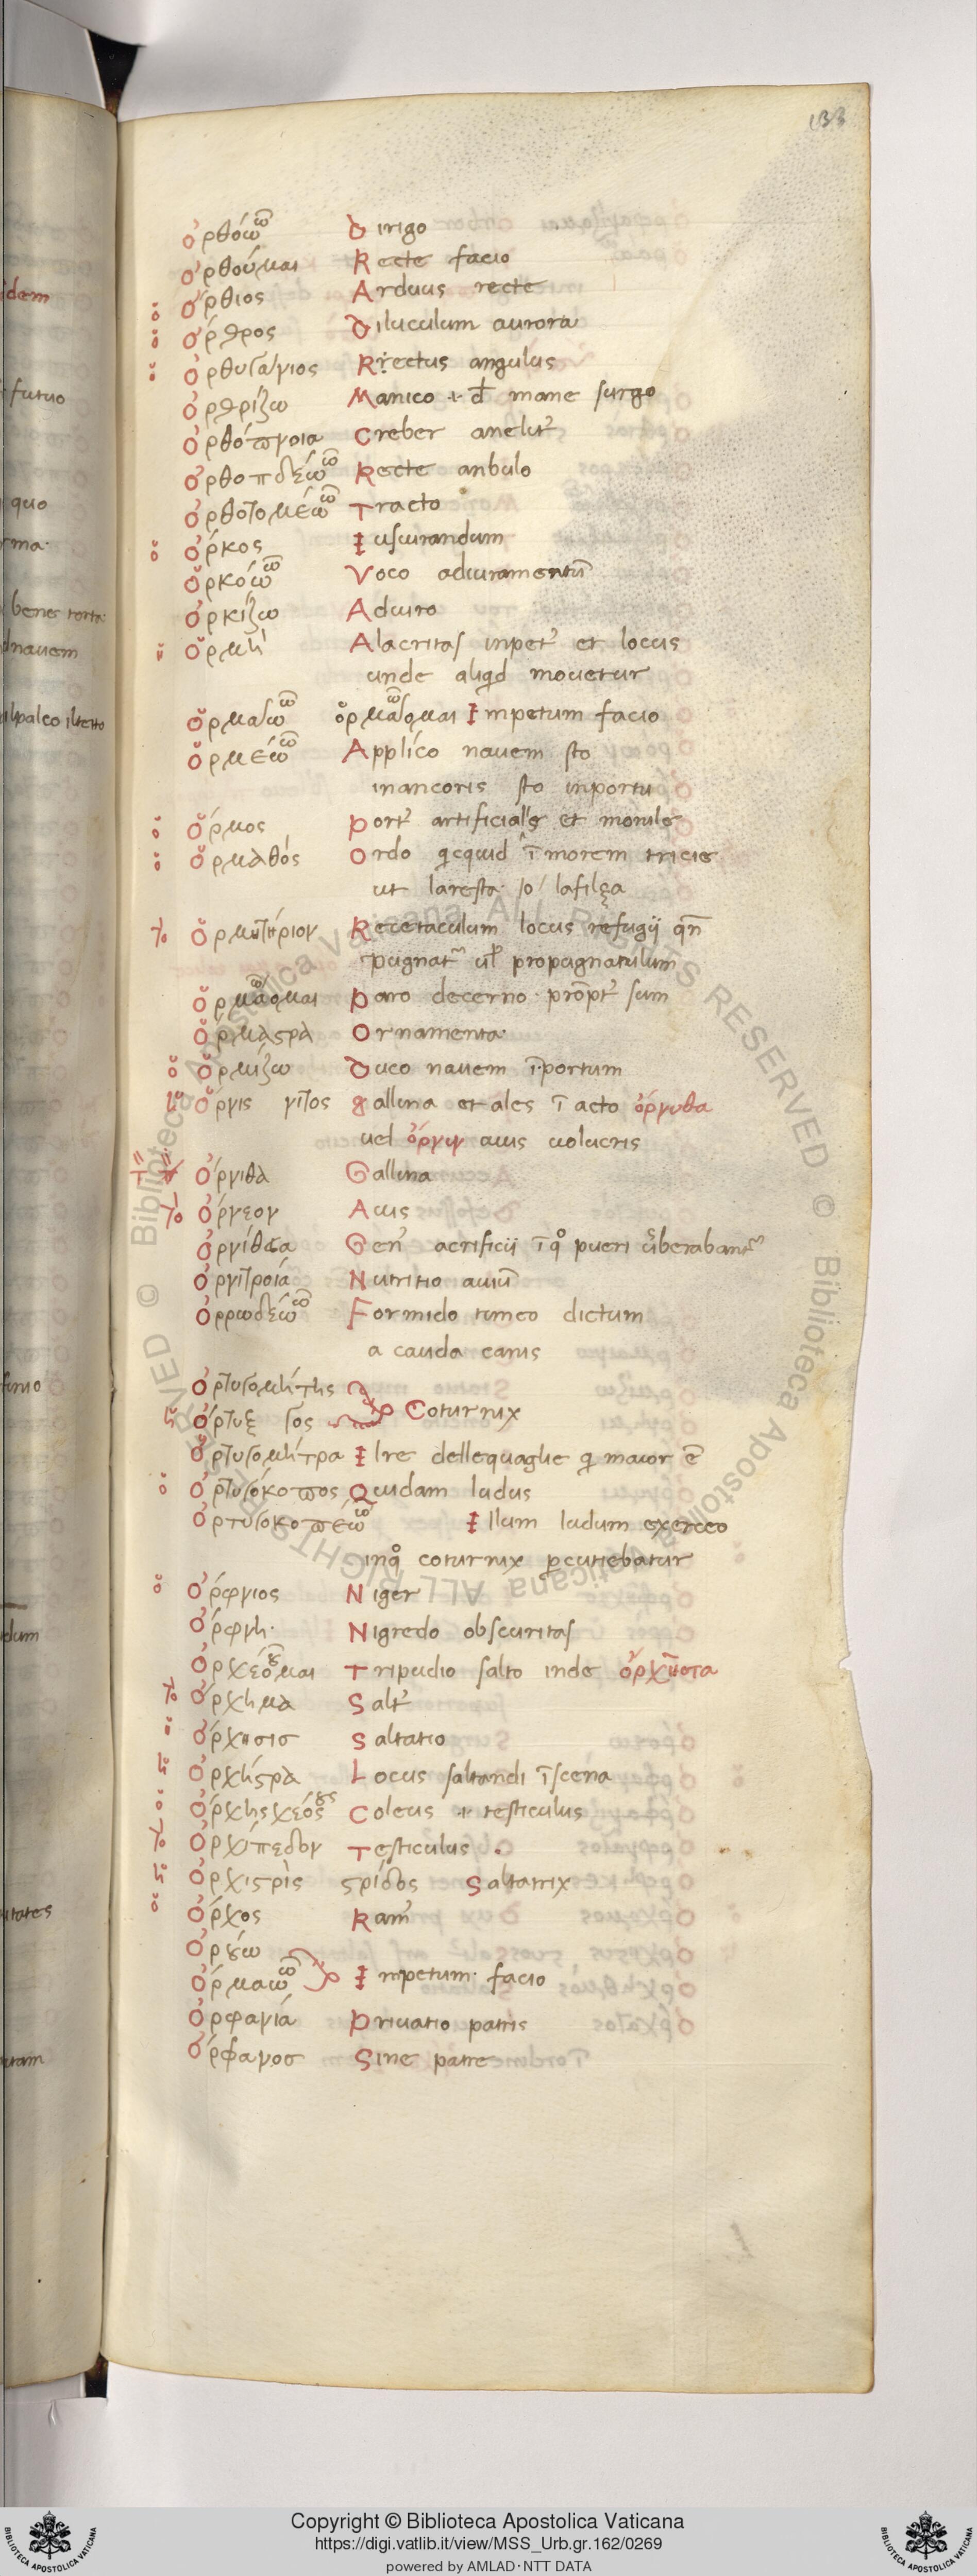 133
ὀρθόω ῶ Dirigo
ὀρθούμαι Recte facio
ὄρθιος Arduus recte
ὄρθρος Diluculum aurora
ὀρθυγώνιος Rrectus angulus
ὀρθρίζω Manico .i. d̄ mane surgo
ὀρθόπνοια Creber anelit᾽
ὀρθοπδέω ῶ Recte anbulo
ὀρθοτομέω ῶ Tracto
ὅ ὄρκος Iusiurandum
ὅρκόω ῶ Voco adiuramentū
ὀρκίζω Adiuro
ὅρμὴ Alacritas inpet᾽ et locus
unde aliqd mouetur
ὅρμαω ῶ ὅρμάομαι ῶ Impetum facio
ὅρμέω ῶ Applico nauem sto
inancoris sto inportu
ὅ ὅρμος Port᾽ artificialis et monile
ὅ ὅρμαθός Ordo qcquid ī morem tricie
ut laresta lafilza
το ὅρμητήριον Recetaculum locus refugij qn̄
pugnat᷑ ul᷑ propugnatulum
ὅρμάομαι ῶ Paro decerno pro᷑pt᾽ sum
ὅρμαστρὰ Ornamenta
ὅρμίζω Duco nauem ī portum
ὄρνις νιτος gallina et ales ī acto ὄρνυθα
uel ὄρνιν auis uolucris
ὄρνιθα Gallina
το ὄρνεον Auis
ὀρνίθεια Gen᾽ acrificij ī qͦ pueri u᷑berabant᷑
ὀρνιτροία Nutritio auiū
ὀρρωδέω ῶ Formido timeo dictum
a cauda canis
ὀρτυγομήτης
ὄρτυξ γος Coturnix
ὀρτυγομήτρα Ilre dellequaglie q maior ē
ὅ ὀρτυγόκοπος Quidam ludus
ὀρτυγοκοπέω ῶ Illum ludum exerceo
inqͦ coturnix pcutiebatur
ὅ ὄρφνιος Niger
ὄρφνη· Nigredo obscuritas
ὀρχέομαι Tripudio salto inde ὀρχῆστα
το ὄρχημα Salt᾽
ὄρχησισ Saltatio
ἡ ὀρχήστρα Locus saltandi ī scena
ὀρχησχεός Coleus .i. testiculus
το ὀρχίπεδον Testiculus .
ἡ ὀρχιστρὶς στρίδος Saltatrix
ὅ ὄρχος Ram᾽
ὀρούω
ὀρμαω ῶ Impetum facio
ὀρφανία Priuatio patris
ὄρφανοσ Sine patre
dem
futuo
quo
rma
benes torta
dnauem
dum
uram
Copyright © Biblioteca Apostolica Vaticana
https://digi.vatlib.it/view/MSS_Urb.gr.162/0269
powered by AMLAD·NTT DATA